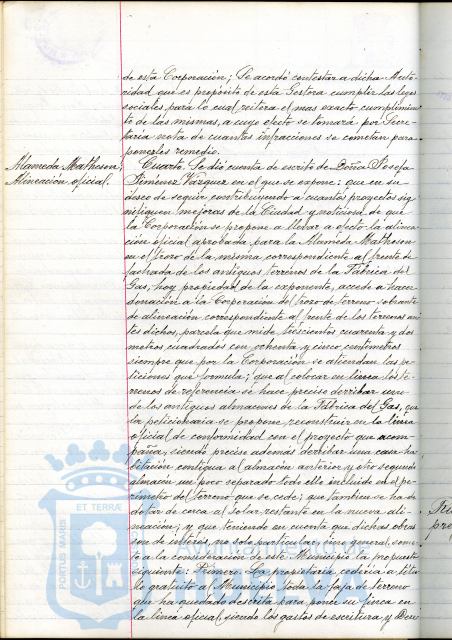 de esta Corporación; Se acordó contestar a dicha Auto-
ridad que es propósito de esta Gestora cumplir las leyes
sociales, para lo cual reitera el mas exacto cumplimien-
to de las mismas, a cuyo efecto se tomará por Secre-
taria nota de cuantas infracciones se cometan para
ponerles remedio.
Alameda Matheson;
Alineación oficial.
Cuarto. Se dió cuenta de escrito de Doña Josefa
Jimenez Vazquez en el que se expone: que en su
deseo de seguir contribuyendo a cuantos proyectos sig-
nifiquen mejoras de la Ciudad y noticiosa de que
la Corporación se propone a llevar a efecto la alinea-
ción oficial aprobada para la Alameda Matheson
en el trozo de la misma correspondiente al frente de
fachada de los antiguos terrenos de la Fábrica del
Gas, hoy propiedad de la exponente, accede a hacer
donación a la Corporación del trozo de terreno sobrante
de alineación correspondiente al frente de los terrenos an-
tes dichos, parcela que mide, trescientos cuarenta y dos
metros cuadrados con ochenta y cinco centimetros
siempre que por la Corporación se atiendan las pe-
ticiones que formula; que al colocar en linea los te-
rrenos de referencia se hace preciso derribar uno
de los antiguos almacenes de la Fábrica del Gas, que
la peticionaria se propone reconstruir en la linea
oficial de conformidad con el proyecto que acom-
paña, siendo preciso además derribar una casa-ha-
bitación contigua al almacén anterior y otro segundo
almacén un poco separado todo ello incluido en el pe-
rimetro del terreno que se cede; que tambien se ha de
dotar de cerca al solar restante en la nueva ali-
neación; y que teniendo en cuenta que dichas obras
son de interés, no solo particular, sino general, some-
te a la consideración de este Municipio la propuesta
siguiente: Primero. La propietaria cederia a títu-
lo gratuito al Municipio toda la faja de terreno
que ha quedado descrita para poner su finca en
la linea oficial, siendo los gastos de escritura y
PORTUS MARIS
ET TERRÆ
HUELVA